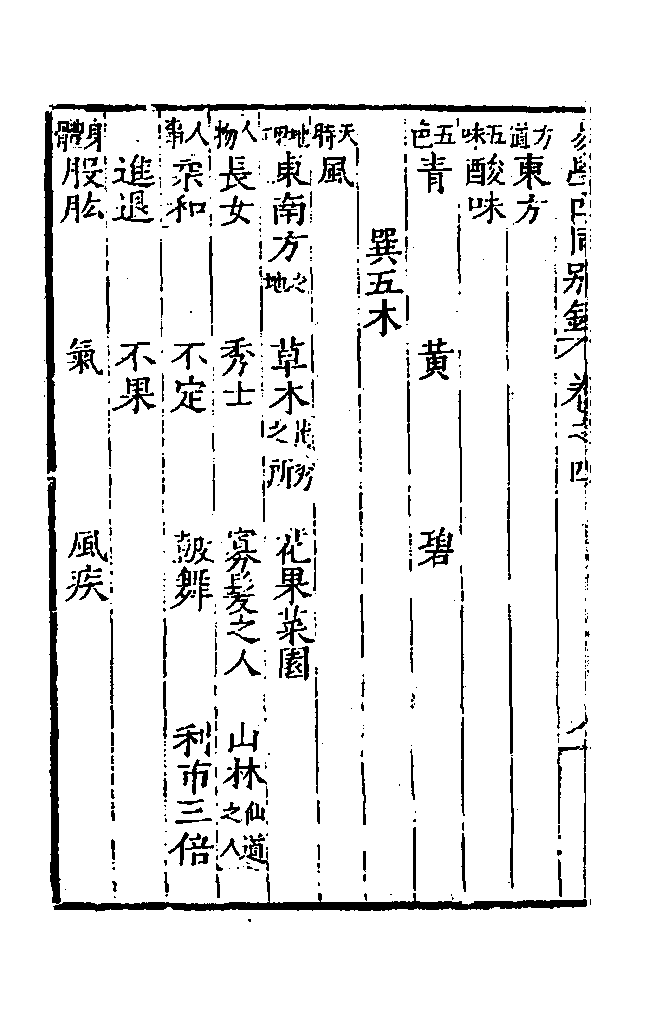 易學四同別錄 卷之四 八
方道 東方
五味 酸味
五色 青 黃 碧
巽五木
天時 風
地理 東南方之地 草木茂秀之所 花果菜園
人物 長女 秀士 寡髮之人 山林仙道之人
人事 柔和 不定 鼓舞 利市三倍
進退 不果
身體 股肱 氣 風疾